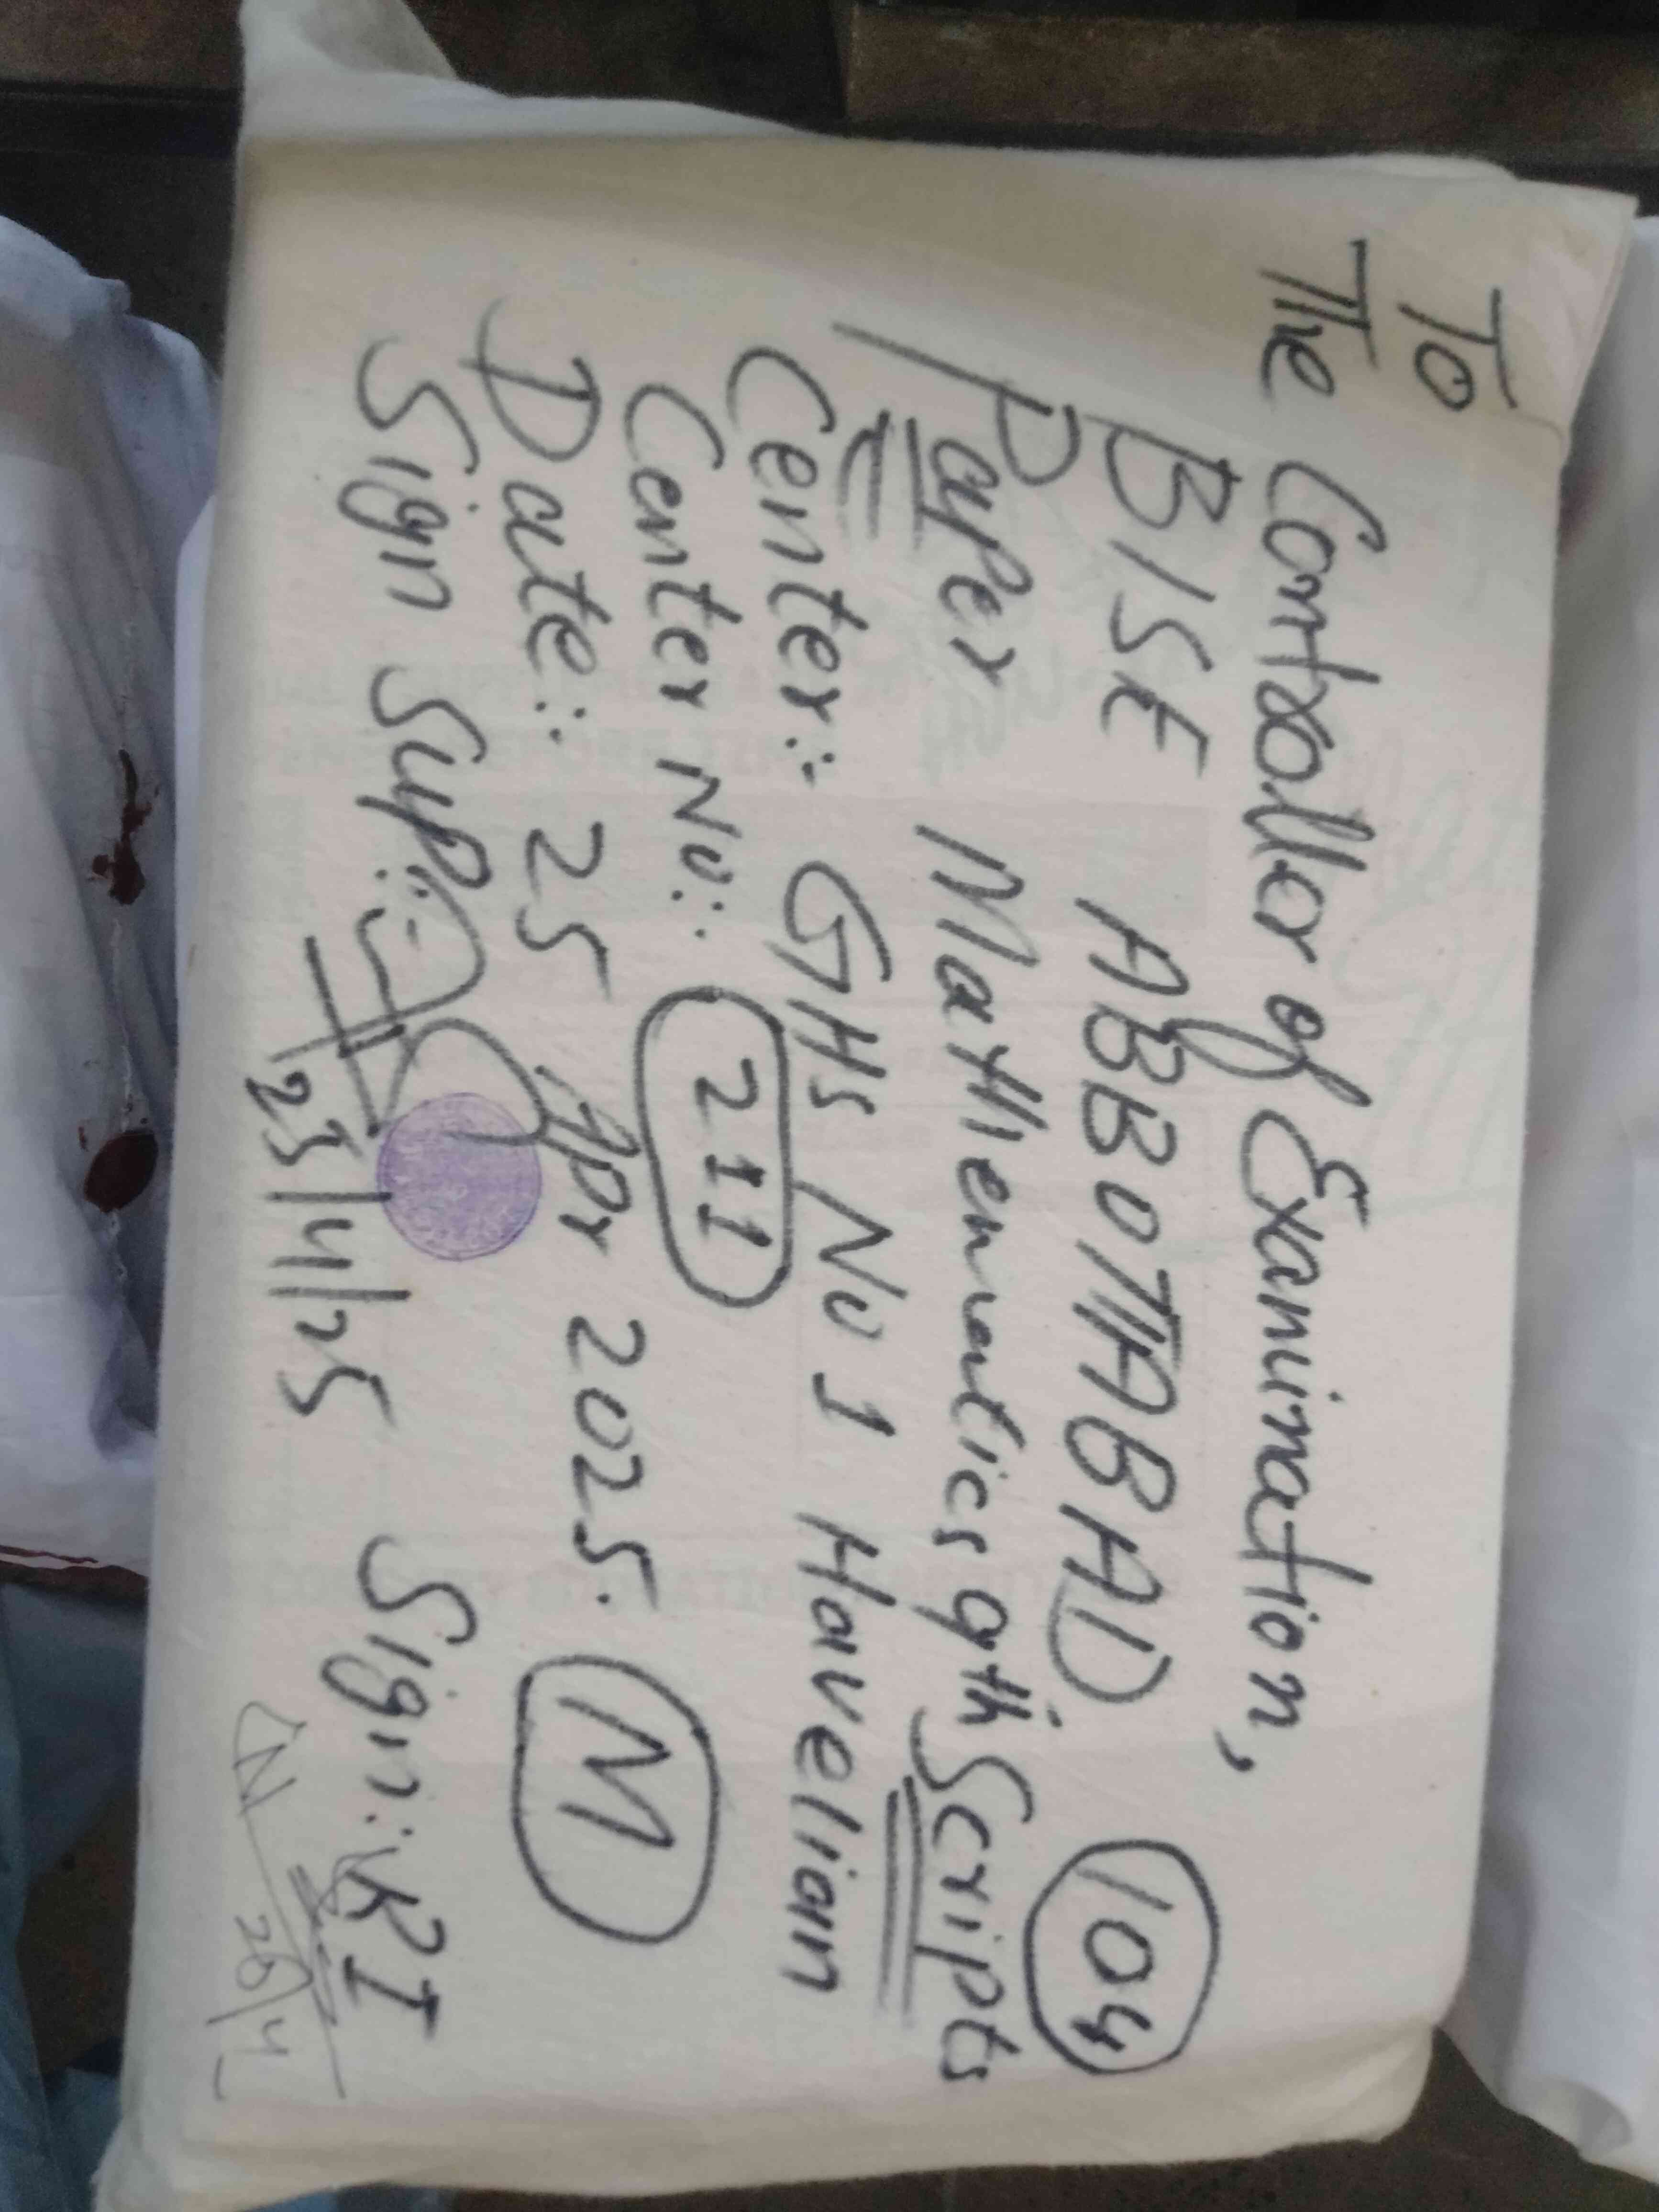 To
The Controller of Examination,
BISE ABBOTTABAD 104
Paper Mathematics 9th Scripts
Center:: GHS No 1 Havelian
Center No:: 211
Date:: 25 Apr 2025. M
Sign Sup:- Sign:: RI
25/4/25
26/4